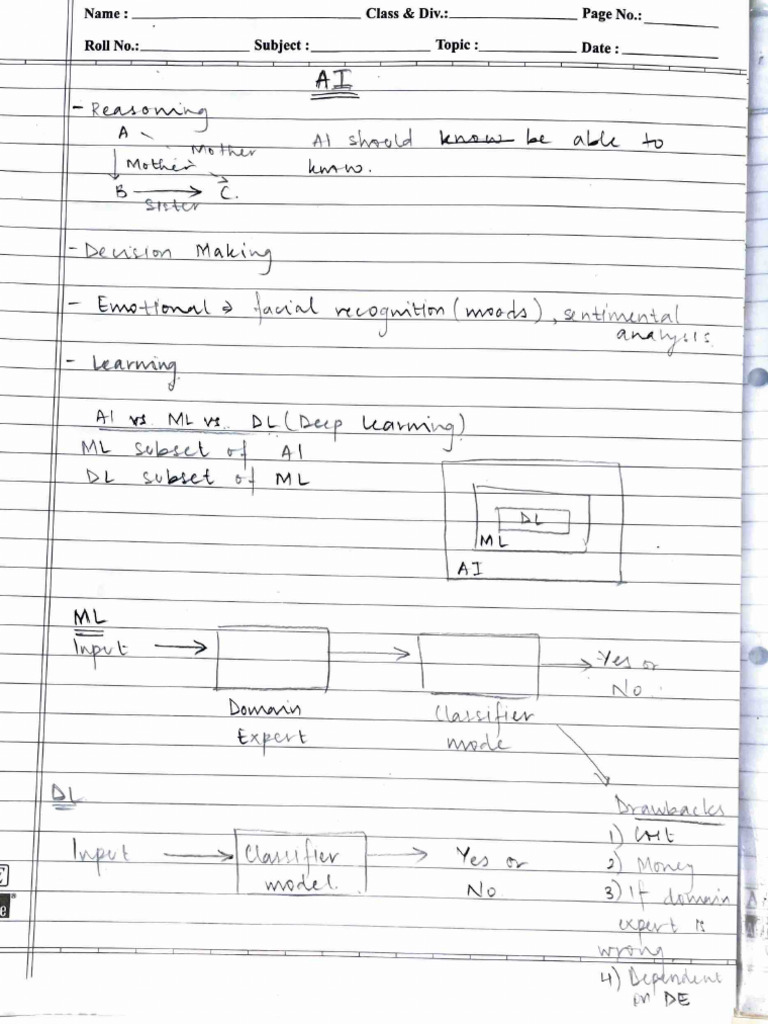 Name : Class & Div.: Page No.:
Roll No.: Subject : Topic : Date :
AI
- Reasoning
A
Mother
AI should know be able to
Mother
know.
B C.
Sister
- Decision Making
- Emotional → facial recognition (moods), sentimental
analysis
- Learning
AI vs ML vs. DL (Deep Learning)
ML subset of AI
DL subset of ML
DL
ML
AI
ML
Input
Yes or
No
Domain
Expert
Classifier
mode
DL
Drawbacks
Input
Classifier
model.
Yes or
No
1) Cost
2) Money
3) If domain
expert is
wrong
4) Dependent
on DE